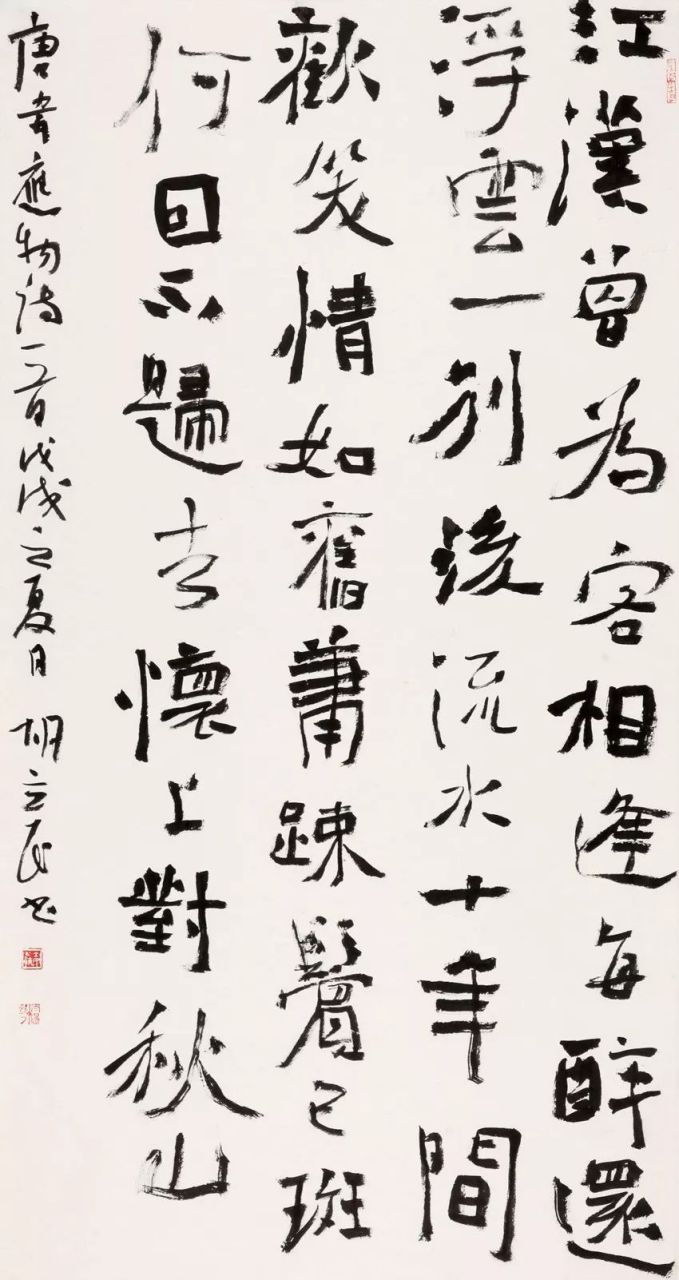 江漢曾為客相逢每醉還
浮雲一別後流水十年間
歡笑情如舊蕭疎鬢已斑
何因不歸去懷上對秋山
唐韋應物詩一首戊戌之夏月胡立民書